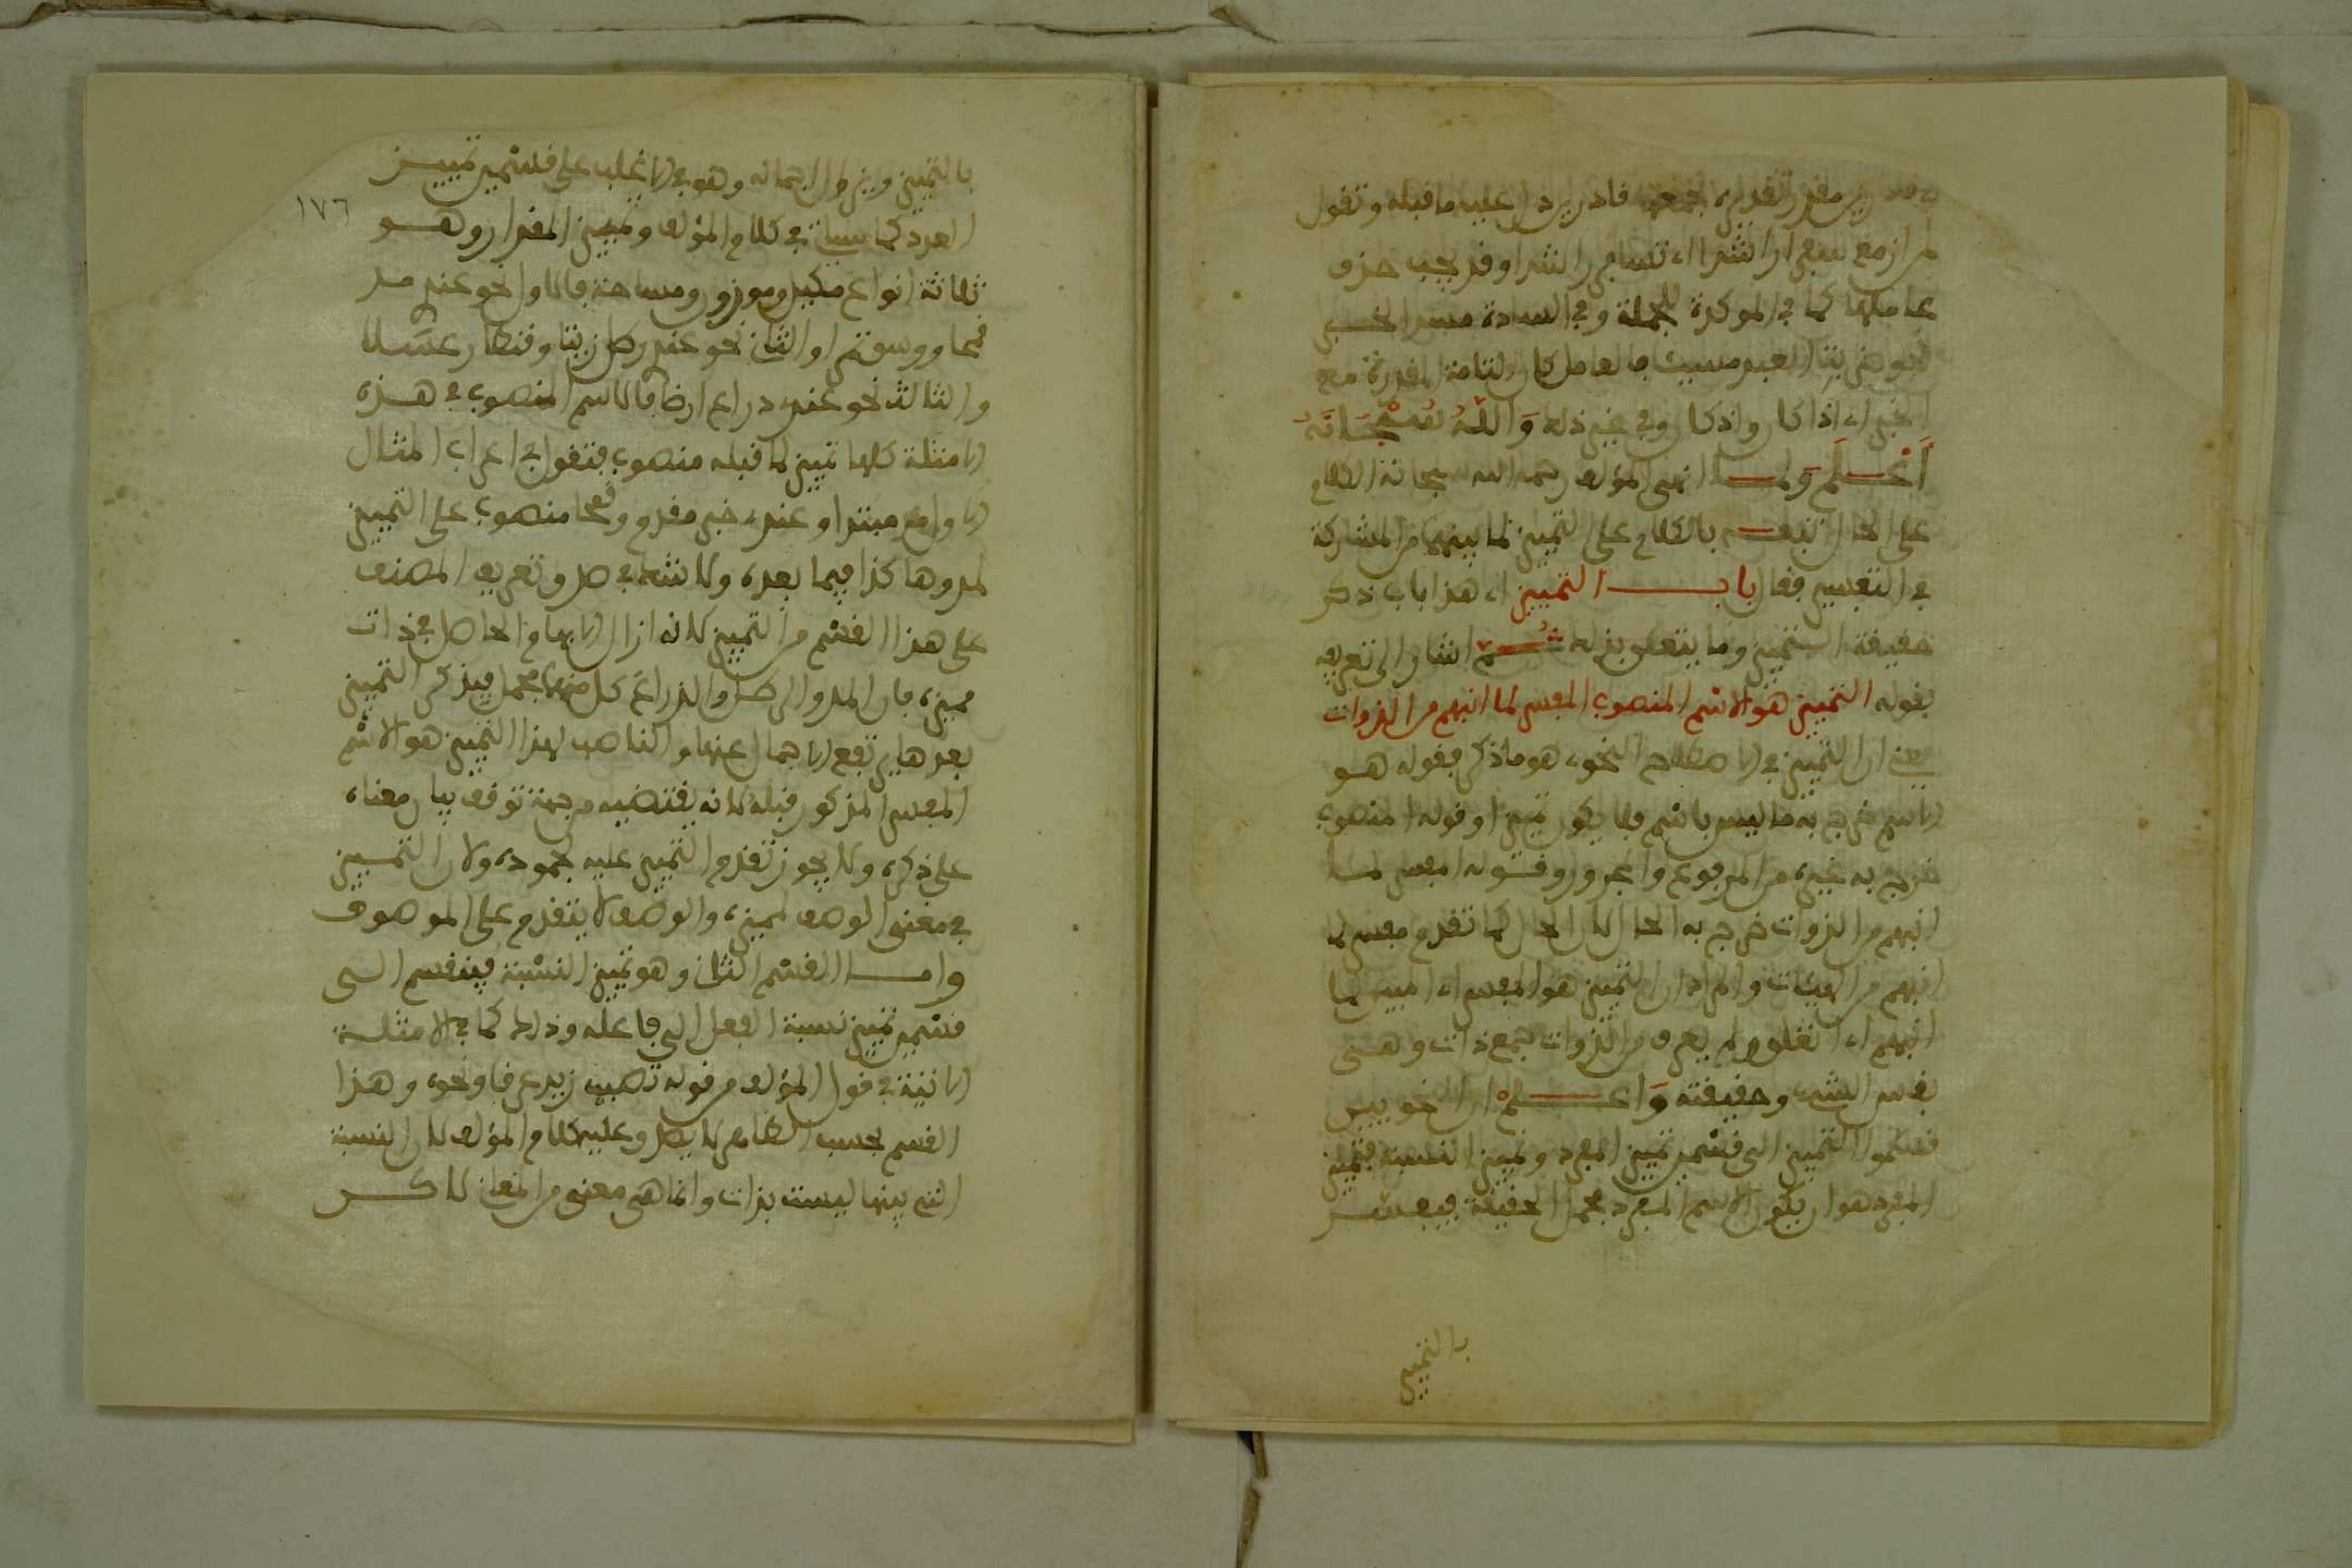 مقدر تقديره نجمعها قادرين دل عليه ما قبله وتقول
لمن ازمع سفرا راشدا اي تسافر راشدا وقد يجب حذف
عاملها كما في الموكدة للجملة وفي السادة مسد الخبر
نحو ضربي العبد مسيئا فالعامل كان التامة المقدرة مع
الخبر اي اذا كان واذ كان وفي غير ذلك وَاللَّهُ سُبْحَانَهُ
أَعْلَم وَلما انهى المؤلف رحمه الله سبحانه الكلام
على الحال اتبعه بالكلام على التمييز لما بينهما من المشاركة
في التفسير فقال باب التمييز اي هذا باب ذكر
حقيقة التمييز وما يتعلق بذلك ثُمَّ اشار الى تعريفه
بقوله التمييز هو الاسم المنصوب المفسر لما انبهم من الذوات
يعني ان التمييز في الاصطلاح النحوي هو ما ذكر فقوله هو
الاسم خرج به ما ليس باسم فلا يكون تمييزا وقوله المنصوب
خرج به غيره من المرفوع والمجرور وقوله المفسر لما
انبهم من الذوات خرج به الحال لان الحال كما تقدم مفسر لما
انبهم من الهيئات والمراد ان التمييز هو المفسر اي المبين لما
انبهم اي انغلق ولم يعرف من الذوات جمع ذات وهي
نفس الشيء وحقيقته وَاعلمْ ان النحويين
قسموا التمييز الى قسمين تمييز المفرد وتمييز النسبة فتمييز
المفرد هو ان يكون الاسم المفرد مجمل الحقيقة فيفسر
بالتمييز
١٧٦
بالتمييز ويزول اجماله وهو في الاغلب على قسمين تمييز
العدد كما سياتي في كلام المؤلف وتمييز المقدار وهو
ثلاثة انواع مكيل وموزون ومساحة فالاول نحو عندي مد
قمحا ووسق تمرا والثاني نحو عندي رطل زيتا وقنطار عسلا
والثالث نحو عندي ذراع ارضا فالاسم المنصوب في هذه
الامثلة كلها تمييز لما قبله منصوب فتقول في اعراب المثال
الاول مد مبتدا وعندي خبر مقدم وقمحا منصوب على التمييز
لمد وهاكذا فيما بعده ولا شك في صدق تعريف المصنف
على هذا القسم من التمييز لانه ازال الابهام الحاصل في ذات
مميزه فان المد والرطل والذراع كل منها مجمل فبذكر التمييز
بعدها يرتفع الاجمال عنها والناصب لهذا التمييز هو الاسم
المفسر المذكور قبله لانه يقتضيه من جهة توقف بيان معناه
على ذكره ولا يجوز تقدم التمييز عليه لجموده ولان التمييز
في معنى الوصف لمميزه والوصف لا يتقدم على الموصوف
واما القسم الثاني وهو تمييز النسبة فينقسم الى
قسمين تمييز نسبة الفعل الى فاعله وذلك كما في الامثلة
الاتية في قول المؤلف من قوله تصبب زيد عرقا ونحوه وهذا
القسم بحسب الظاهر لا يصدق عليه كلام المؤلف لان النسبة
التي بينها ليست بذات وانما هي معنى من المعاني لاكن